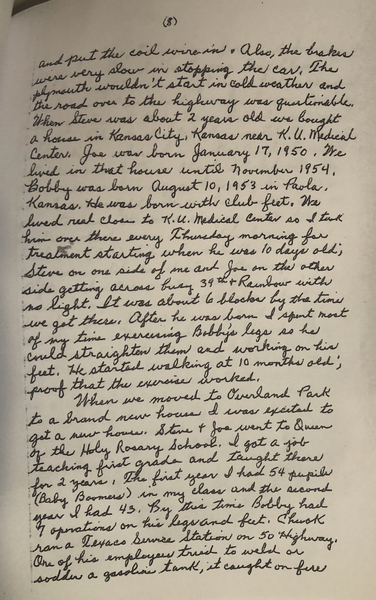 (8)
and put the coil wire in. Also, the brakes
were very slow in stopping the car. The
plymouth wouldn't start in cold weather and
the road over to the highway was questionable.
When Steve was about 2 years old we bought
a house in Kansas City, Kansas near K.U. Medical
Center. Joe was born January 17, 1950. We
lived in that house until November 1954.
Bobby was born August 10, 1953 in Paola,
Kansas. He was born with club feet. We
lived real close to K.U. Medical Center so I took
him over there every Thursday morning for
treatment starting when he was 10 days old;
Steve on one side of me and Joe on the other
side getting across busy 39th & Rainbow with
no light. It was about 6 blocks by the time
we got there. After he was born I spent most
of my time exercising Bobby's legs so he
could straighten them and working on his
feet. He started walking at 10 months old;
proof that the exercise worked.
When we moved to Overland Park
to a brand new house I was excited to
get a new house. Steve & Joe went to Queen
of the Holy Rosary School. I got a job
teaching first grade and taught there
for 2 years. The first year I had 54 pupils
(Baby Boomers) in my class and the second
year I had 43. By this time Bobby had
7 operations on his legs and feet. Chuck
ran a Texaco Service Station on 50 Highway.
One of his employees tried to weld or
sodder a gasoline tank, it caught on fire